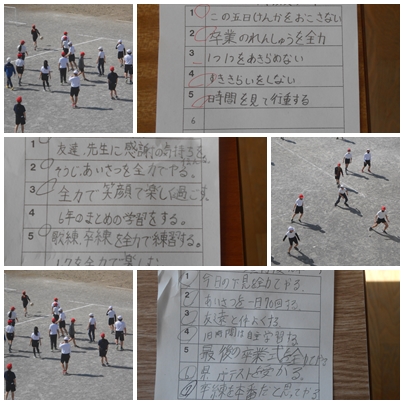 1 この五日けんかをおこさない
2 卒業のれんしゅうを全力
3 1つ1つをあきらめない
4 すききらいをしない
5 時間を見て行重する
6
1 友達、先生に感謝の気持ちを。
2 そうじ、あいさつを全力でやる。
3 全力で笑顔で楽しく過ごす。
4 6年のまとめの学習をする。
5 歌練、卒練を全力で練習する。
全力で楽しむ
1 今日の
2 あいさつを一日
3 友達と仲よくする
4 学習する
5 最後の卒業式全力でやる
6 県 テストを受かる。
7 卒練を本番だと思ってやる